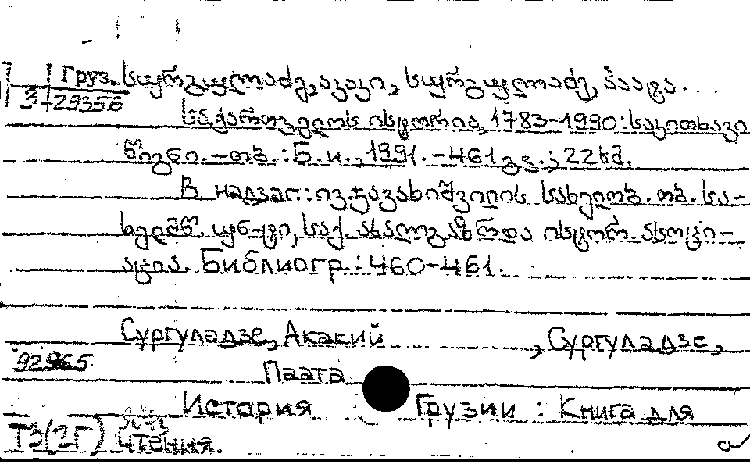 Груз. სურგულაძე, აკაკი, სურგულაძე, პაატა.
3-29356
საქართველოს ისტორია, 1783-1990: საკითხავი
წიგნი. - თბ.: Б.и., 1991. - 461 გვ.; 22 სმ.
В надзаг.: ივ. ჯავახიშვილის სახელობ. თბ. სა-
ხელმწ. უნ-ტი, საქ. ახალგაზრდა ისტორ. ასოცი-
აცია. Библиогр.: 460-461.
Сургуладзе, Акакий , Сургуладзе,
92965
Паата
История Грузии : Книга для
Т3(2Г) чтения.